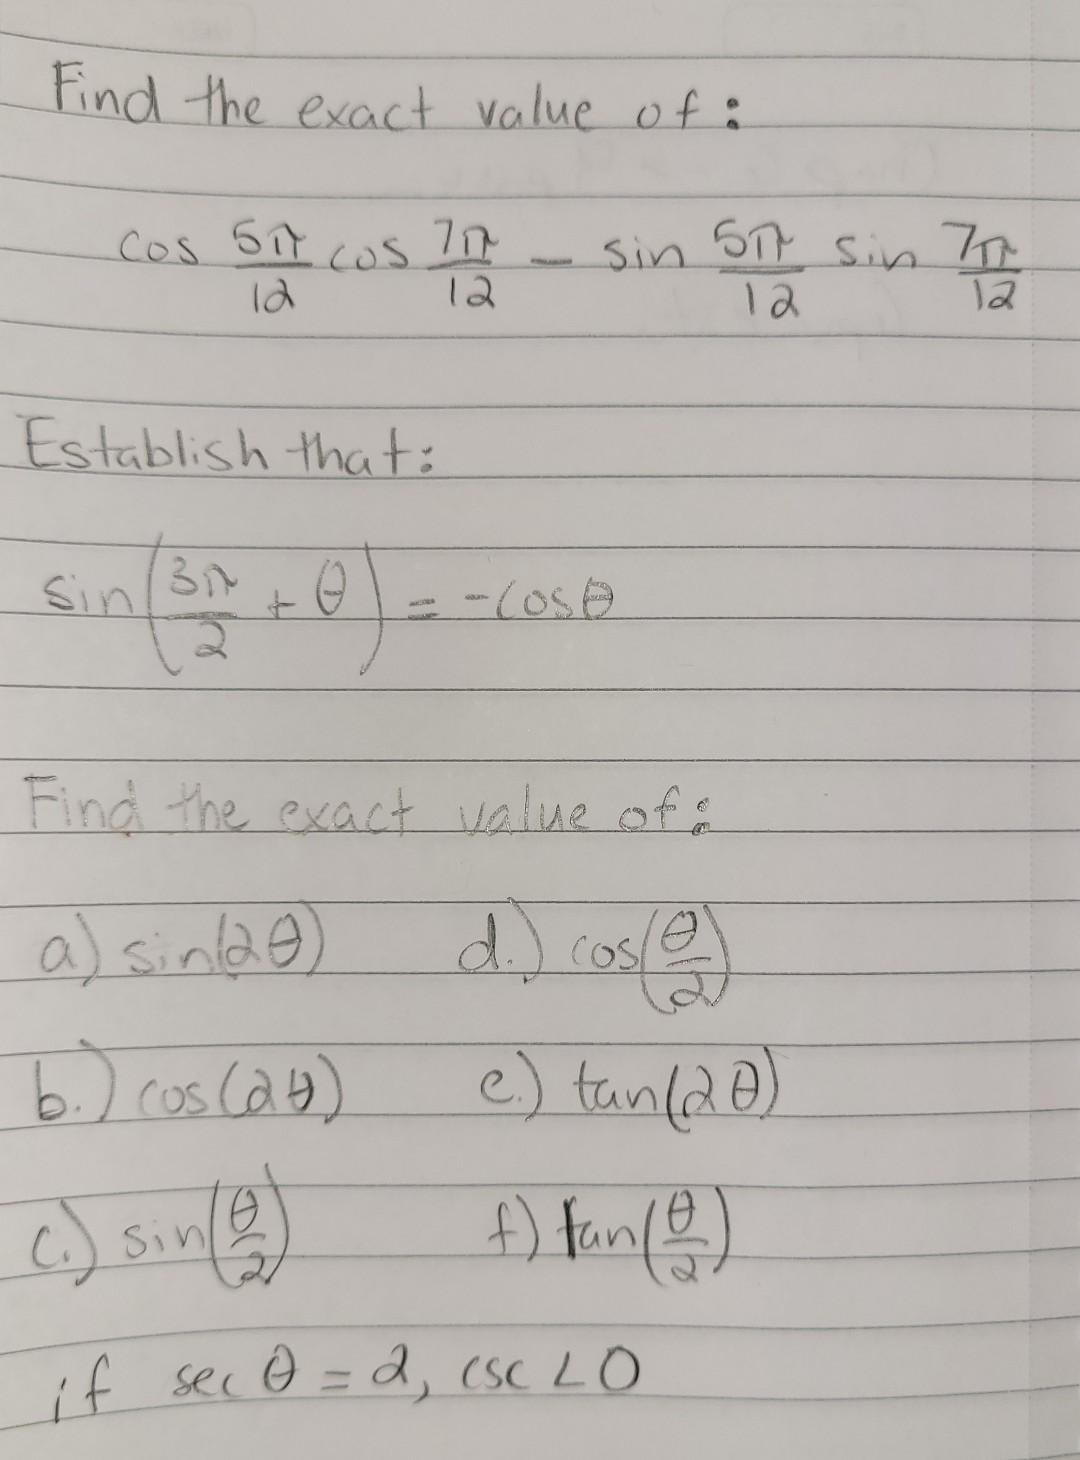 Find the exact value of:
cos 5π/12 cos 7π/12 - sin 5π/12 sin 7π/12
Establish that:
sin(3π/2 + θ) = -cosθ
Find the exact value of:
a) sin(2θ) d.) cos(θ/2)
b.) cos(2θ) e.) tan(2θ)
c.) sin(θ/2) f) tan(θ/2)
if sec θ = 2, csc < 0